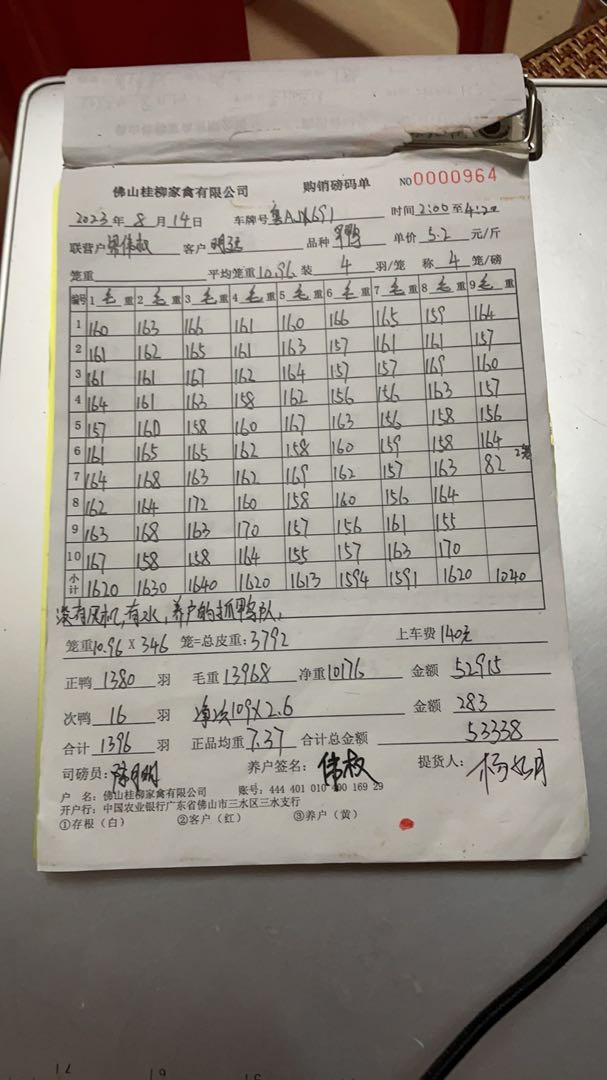 佛山桂柳家禽有限公司 购销磅码单 NO 0000964
2023年 8月 14日 车牌号 粤A 时间 2:00 至 4:20
联营户 客户 明远 品种 单价 5.2 元/斤
笼重 平均笼重 10.96 装 4 羽/笼 称 4 笼/磅
编号 1 毛重 2 毛重 3 毛重 4 毛重 5 毛重 6 毛重 7 毛重 8 毛重 9 毛重
1 160 163 166 161 160 166 165 159 164
2 161 162 165 161 163 157 161 161 157
3 161 161 167 162 164 157 157 169 160
4 164 161 163 158 162 156 156 163 157
5 157 160 158 160 167 163 156 158 156
6 161 165 165 162 158 160 159 158 164
7 164 168 163 162 169 162 157 163 82 2笼
8 162 164 172 160 158 160 156 164
9 163 168 163 170 157 156 161 155
10 167 158 158 164 155 157 163 170
小计 1620 1630 1640 1620 1613 1594 1591 1620 1040
没有风机,有水,养户的抓鸭队,
笼重 10.96 X 346 笼=总皮重:3792 上车费 140元
正鸭 1380 羽 毛重 13968 净重 10176 金额 52915
次鸭 16 羽 109X2.6 金额 283
合计 1396 羽 正品均重 7.37 合计总金额 53338
司磅员: 养户签名: 伟权 提货人:
户 名:佛山桂柳家禽有限公司 账号:444 401 010 400 169 29
开户行:中国农业银行广东省佛山市三水区三水支行
①存根(白) ②客户(红) ③养户(黄)